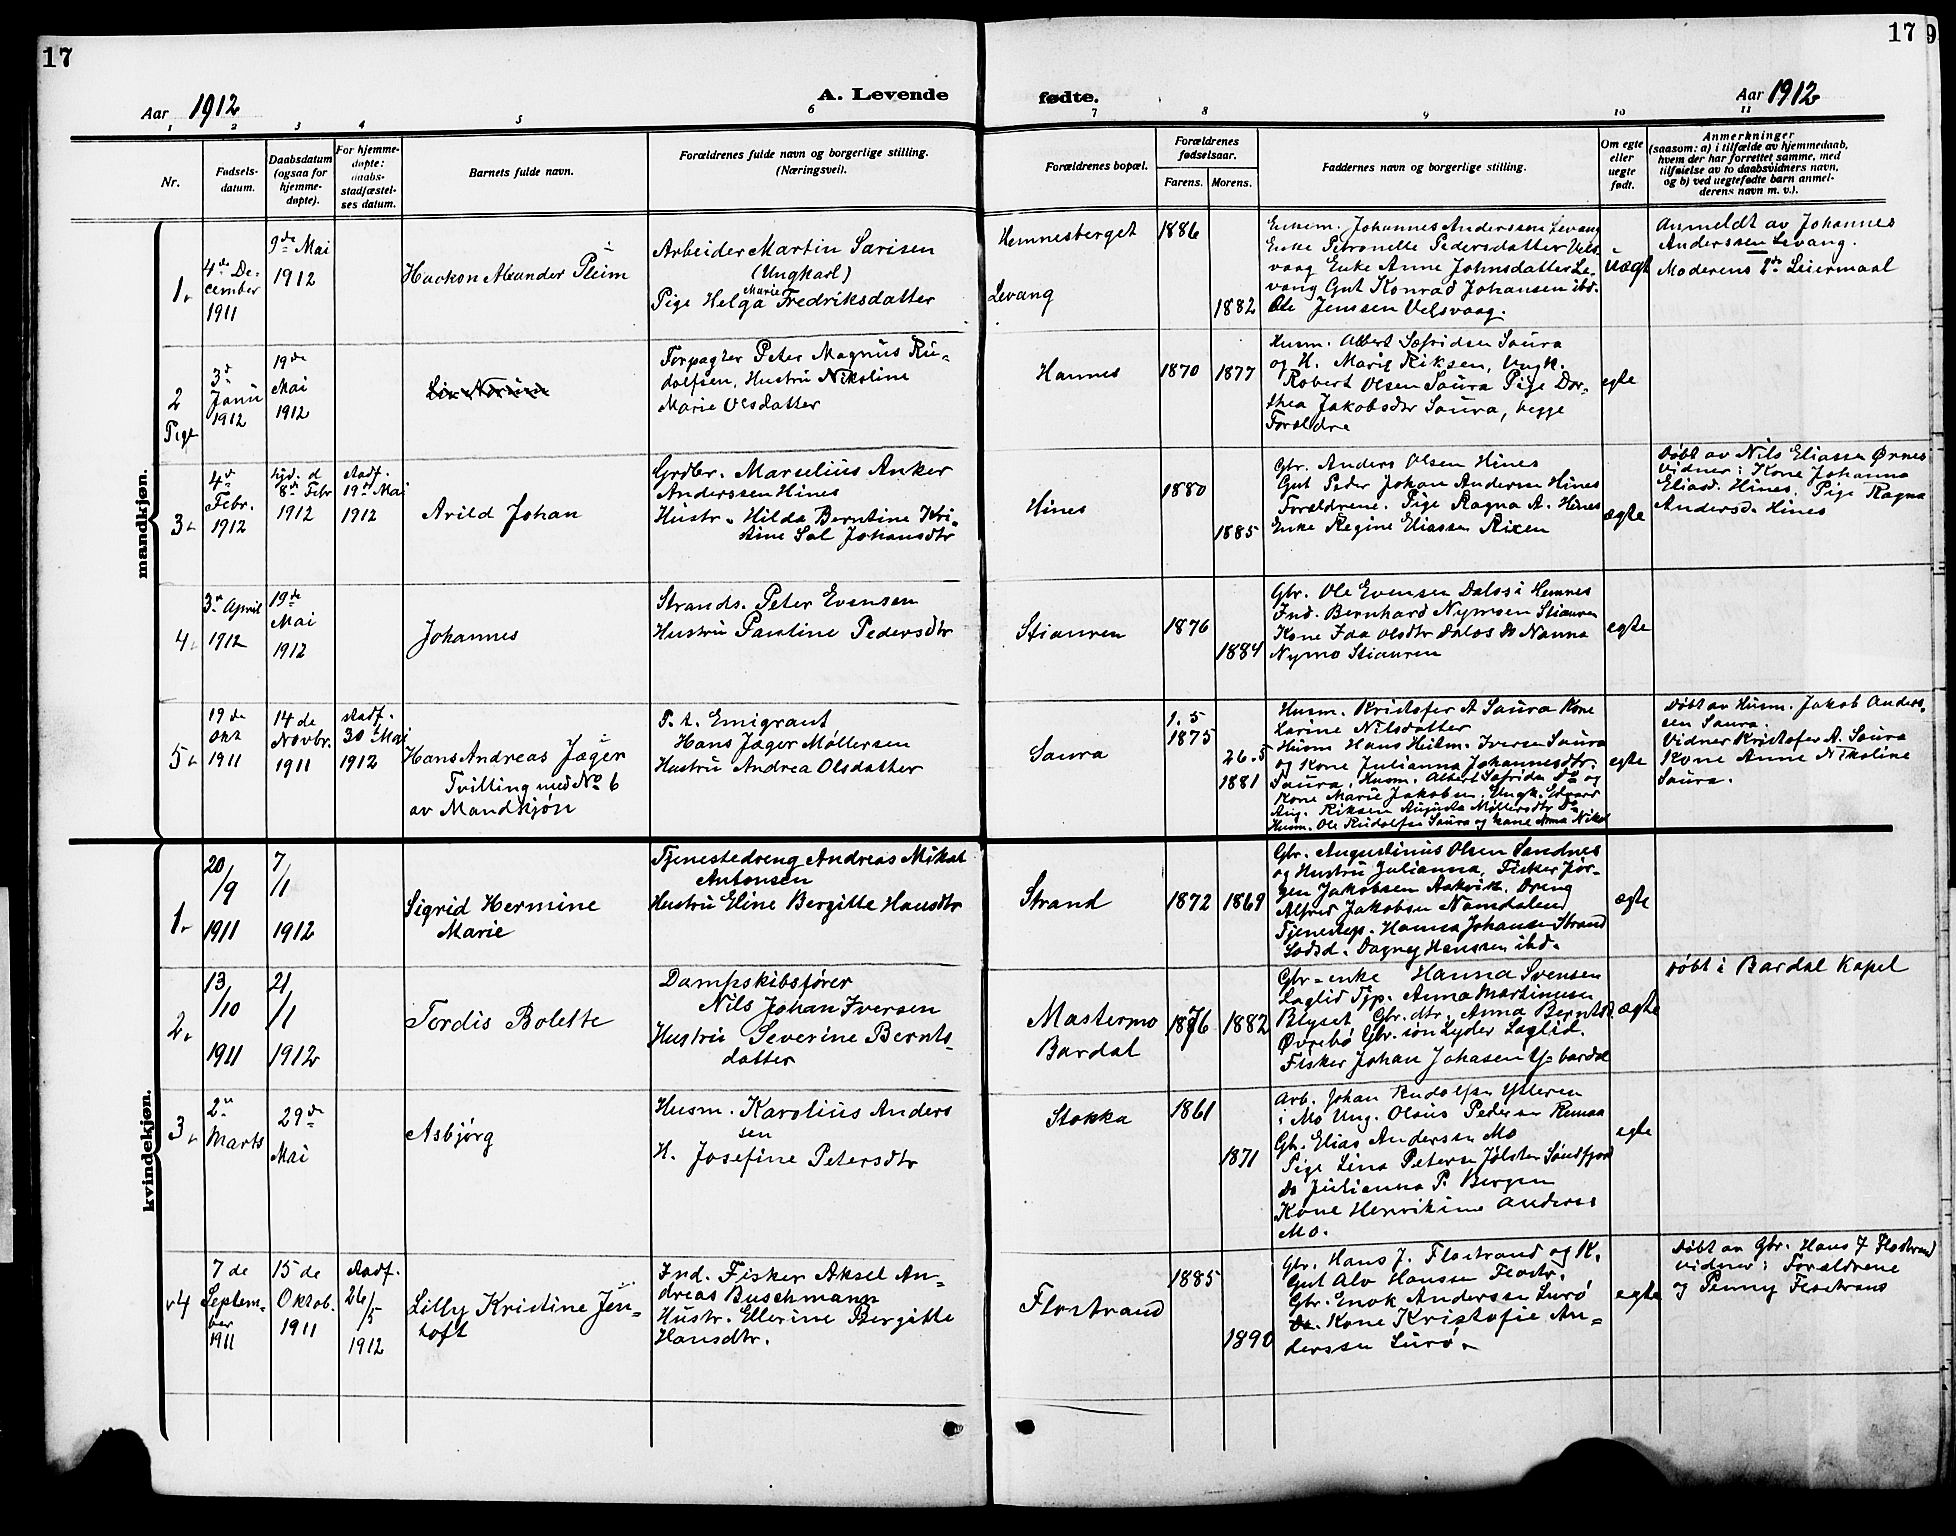 17
17
9
Aar 1912
A. Levende fødte.
Aar 1912
1 2 3 4 5 6 7 8 9 10 11
Nr.
Fødsels-
datum.
Daabsdatum
(ogsaa for
hjemme-
døpte).
For hjemme-
døpte:
daabs-
stadfæstel-
ses datum.
Barnets fulde navn.
Forældrenes fulde navn og borgerlige stilling.
(Næringsvei).
Forældrenes bopæl.
Forældrenes
fødselsaar.
Farens. Morens.
Faddernes navn og borgerlige stilling.
Om egte
eller
uegte
født.
Anmerkninger
(saasom: a) i tilfælde av hjemmedaab,
hvem der har forrettet samme, med
tilføielse av to daabsvidners navn,
og b) ved uegtefødte barn anmel-
derens navn m. v.).
mandkjøn.
1.
4de De-
cember
1911
9de Mai
1912
Haakon Alexander Pleim
Arbeider Martin Sarisen
(Ungkarl)
Pige Helga Marie Fredriksdatter
Hemnesberget
Levang
1886
1882
Enkem. Johannes Anderssen Levang
Enke Petronelle Pedersdatter Vels-
vaag Enke Anne Johnsdatter Le-
vang Gut Konrad Johansen ibd.
Ole Jenssen Velsvaag.
uægt
Anmeldt av Johannes
Anderssen Levang.
Moderens 2de Leiermaal
2
Pige
3d
Janu
1912
19de
Mai
1912
Forpagter Peter Magnus Ru-
dolfsen, Hustru Nikoline
Marie Olsdatter
Hannes
1870
1877
Husm. Albert Sefridsen Saura
og H. Marie Riksen, Ungk.
Robert Olsen Saura Pige Dor-
thea Jakobsdtr Saura, begge
Forældre
egte
3.
4d
Febr.
1912
hjd. d
8de Febr
1912
stadf.
19de Mai
1912
Arild Johan
Grdbr. Marselius Anker
Anderssen Hines
Hustr. Hilda Berntine Kri-
stine Sal Johansdtr
Hines
1880
1885
Gbr. Anders Olsen Hines
Gut Peder Johan Andersen Hines
Forældrene. Pige Ragna A. Hines
Enke Regine Eliassen
ægte
Døbt av Nils Eliassen Ørnes
Vidner: Kone Johanna
Eliasd. Hines. Pige Ragna
Andersd. Hines
4.
3de April
1912
19de
Mai
1912
Johannes
Strands. Peter Evensen
Hustru Pauline Pedersdtr
Stiauren
1876
1884
Gbr. Ole Evensen Dalos i Hemnes
Ind. Bernhard Nymoen Stiauren
Kone Ida Olsdtr Dalos Do Nanna
Nymo Stiauren
egte
5.
19 de
Okt
1911
14 de
Novbr.
1911
stadf.
30te Mai
1912
Hans Andreas Jæger
Tvilling med No 6
av Mandkjøn
P. t. Emigrant
Hans Jæger Møllersen
Hustru Andrea Olsdatter
Saura
1. 5
1875
26.5
1881
Husm. Kristofer A Saura Kone
Larine Nilsdatter
Husm Hans Heilm. Iversen Saura
og Kone Julianna Johannesdtr.
Saura, Husm. Albert Sefridsen Do og
Kone Marie Jakobsen, Ungk. Edvard
Aug. Riksen Augusta Møllersdtr Do
Husm. Ole Rudolfsen Saura og kone Anna Nikol
egte
Døbt av Husm. Jakob Anders-
sen Saura.
Vidner Kristofer A. Saura
Kone Anne Nikoline
Saura.
kvindekjøn.
1.
20
/9
1911
7
/1
1912
Sigrid Hermine
Marie
Tjenestedreng Andreas Mikal
Antonsen
Hustru Eline Bergitte Hansdtr
Strand
1872
1869
Gbr. Augustinus Olsen Sandnes
og Hustru Julianna, Fisker Jør-
gen Jakobsen Aakvik. Dreng
Alfred Jakobsen Namdalen
Tjenestep. Hanna Johansen Strand
Dagny Hanssen ibd.
ægte
2.
13
/10
1911
21
/1
1912
Tordis Bolette
Dampskibsfører
Nils Johan Iversen
Hustru Severine Bernts-
datter
Mastermo
Bardal
1876
1882
Gbr-enke Hanna Svensen
Laglid Tjp. Anna Martinusen
Blyset, Gbr. dtr. Anna Berntsd.
Øvrebø Gbr. søn Lyder Laglid.
Fisker Johan Johasen Y- bardal
ægte
Døbt i Bardal Kapel
3.
2n
Marts
29de
Mai
Asbjørg
Husm. Karolius Anders
sen
H. Josefine Petersdtr
Stokka
1861
1871
Arb. Johan Rudolfsen Ytteren
i Mo Ung. Olaus Pedersen
Gbr. Elias Andersen Mo
Pige Lina Petersen Jølster Søndfjord
do Julianna P. Bergen
Kone Henrikine Anderss
Mo.
egte
4
7 de
Septem-
ber
1911
15 de
Oktob.
1911
stadf.
26
/5
1912
Lilly Kristine Jen-
toft
Ind. Fisker Aksel An-
dreas Buschmann
Hustr. Ellerine Bergitte
Hansdtr.
Flostrand
1885
1890
Gbr. Hans J. Flostrand og K.
Gut Alv Hanssen Flostr.
Gbr. Enok Anderssen Lurø
Kone Kristofie An-
derssen Lurø.
egte
Døbt av Gbr. Hans J Flostrand
Vidner: Forældrene
og Penny Flostrand